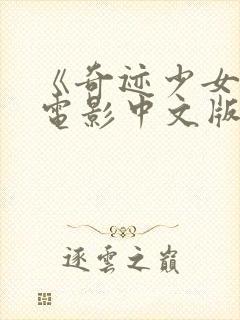 《奇迹少女
电影中文版
逐云之巅